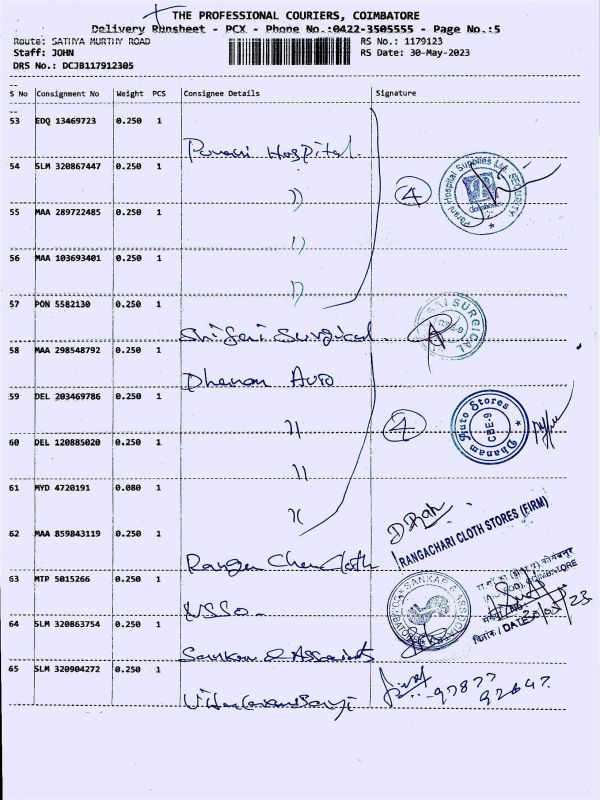 THE PROFESSIONAL COURIERS, COIMBATORE
Delivery Runsheet - PCX - Phone No.:0422-3505555 - Page No.:5
Route: SATHYA MURTHY ROAD RS No.: 1179123
Staff: JOHN RS Date: 30-May-2023
DRS No.: DCJB117912305
S No Consignment No Weight PCS Consignee Details Signature
53 EDQ 13469723 0.250 1
Hospital
54 SLM 320867447 0.250 1
4
Parani Hospital Supplies Ltd SECURITY
55 MAA 289722485 0.250 1
56 MAA 103693401 0.250 1
57 PON 5582130 0.250 1
Surgical
SAI SURGICAL
CBE-9
58 MAA 298548792 0.250 1
Dhanam Auto
59 DEL 203469786 0.250 1
4
Dhanam Auto Stores
CBE-9
60 DEL 120885020 0.250 1
61 MYD 4720191 0.080 1
62 MAA 859843119 0.250 1
RANGACHARI CLOTH STORES (FIRM)
Cloth
63 MTP 5015266 0.250 1
NSSO
SANKAR & ASSOCIATES
COIMBATORE
दिनांक / DATE
64 SLM 320863754 0.250 1
Sankar & Associates
65 SLM 320904272 0.250 1